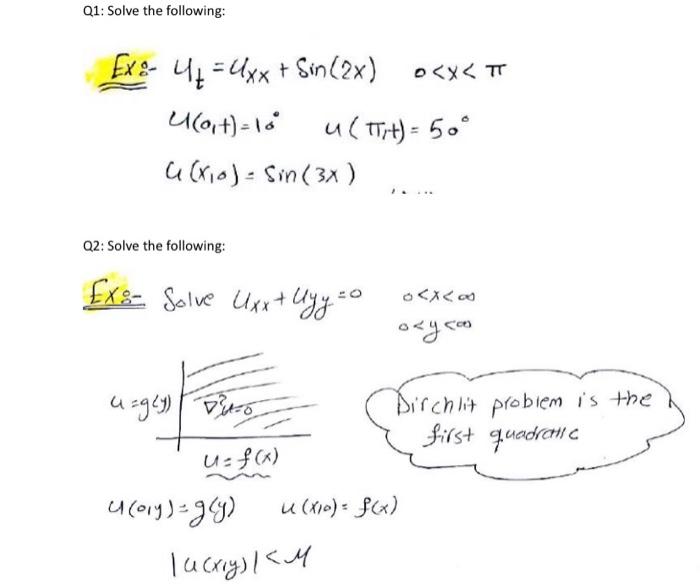 Q1: Solve the following:
Ex:- U_t = U_xx + Sin(2x) 0<x<π
U(0,t)=10° u(π,t)= 50°
U(x,0)= Sin(3x) .....
Q2: Solve the following:
Ex:- Solve U_xx + U_yy = 0 0<x<∞
0<y<∞
u=g(y) ∇²u=0
Dirchlit problem is the
first quadratic
u=f(x)
u(0,y)=g(y) u(x,0)= f(x)
|u(x,y)|<M